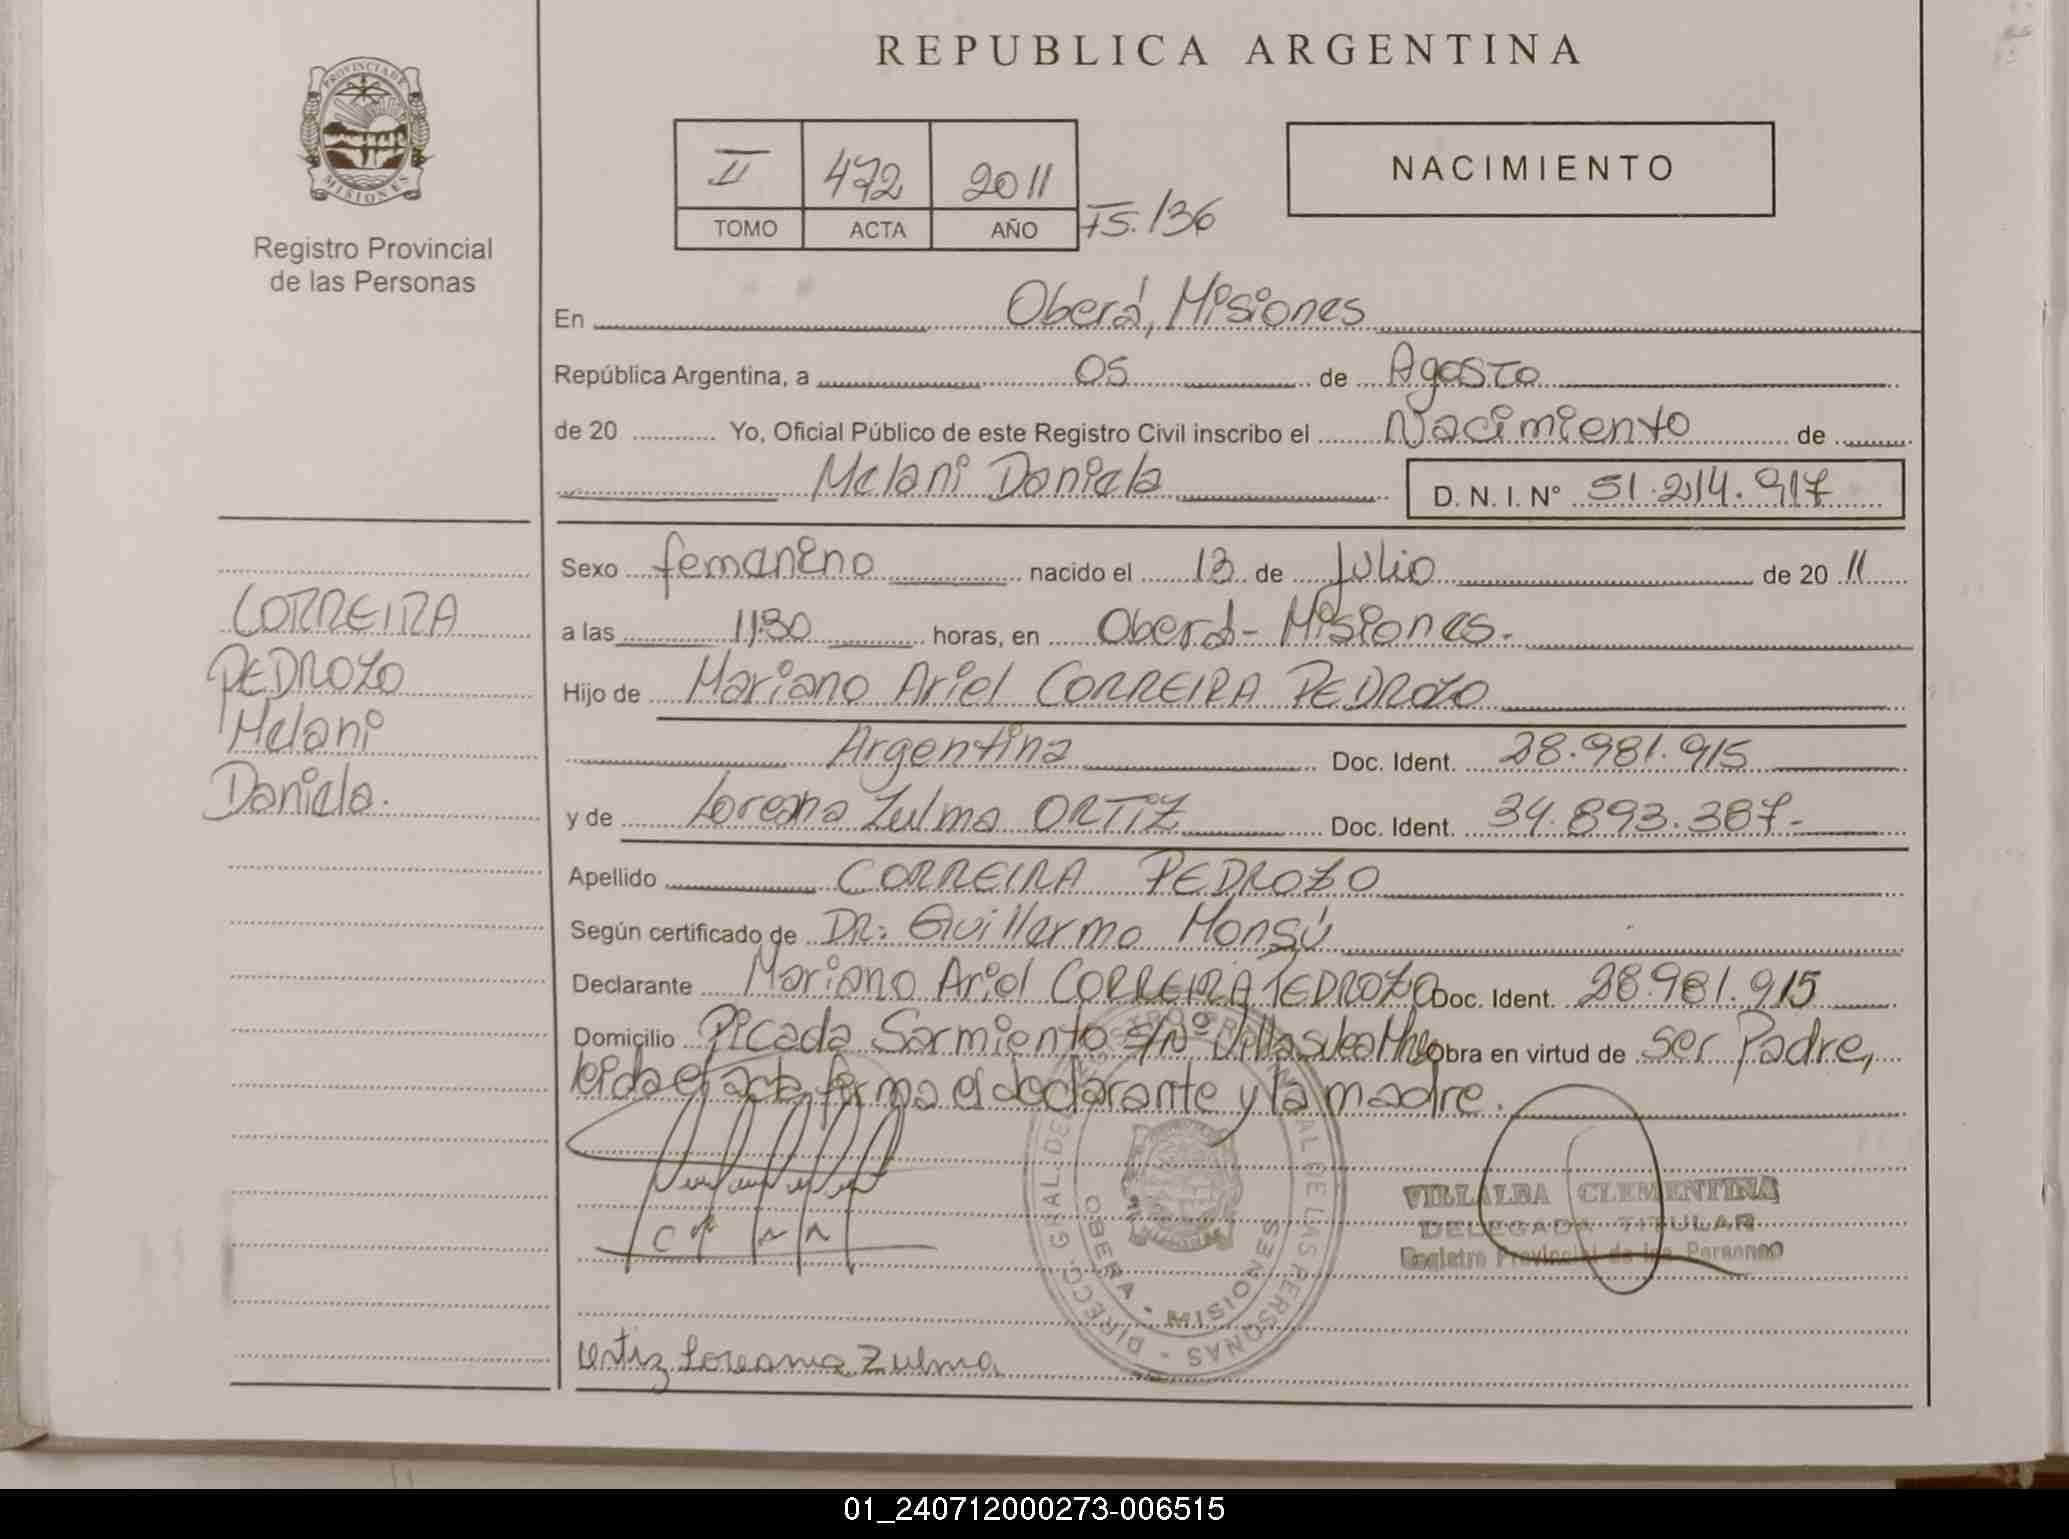 REPUBLICA ARGENTINA
PROVINCIA DE
MISIONES
Registro Provincial
de las Personas
II 472 2011
TOMO ACTA AÑO
FS. 136
NACIMIENTO
En Oberá, Misiones
República Argentina, a 05 de Agosto
de 20 Yo, Oficial Público de este Registro Civil inscribo el Nacimiento de
Melani Daniela D. N. I. N° 51.214.917
CORREIRA
PEDROZO
Melani
Daniela.
Sexo femenino nacido el 13 de Julio de 20 11
a las 11:30 horas, en Oberá - Misiones.
Hijo de Mariano Ariel CORREIRA PEDROZO
Argentina Doc. Ident. 28.981.915
y de Loreana Zulma ORTIZ Doc. Ident. 34.893.387-
Apellido CORREIRA PEDROZO
Según certificado de DR: Guillermo Monsú
Declarante Mariano Ariel CORREIRA PEDROZO Doc. Ident. 28.981.915
Domicilio Picada Sarmiento S/Nº Villa Obra en virtud de ser Padre,
leida el acta firma el declarante y la madre.
DIRECC. GRAL DEL REGISTRO PROVINCIAL DE LAS PERSONAS
OBERA - MISIONES
VILLALBA CLEMENTINA
DELEGADA TITULAR
Registro Provincial de las Personas
Ortiz Loreana Zulma
01_240712000273-006515